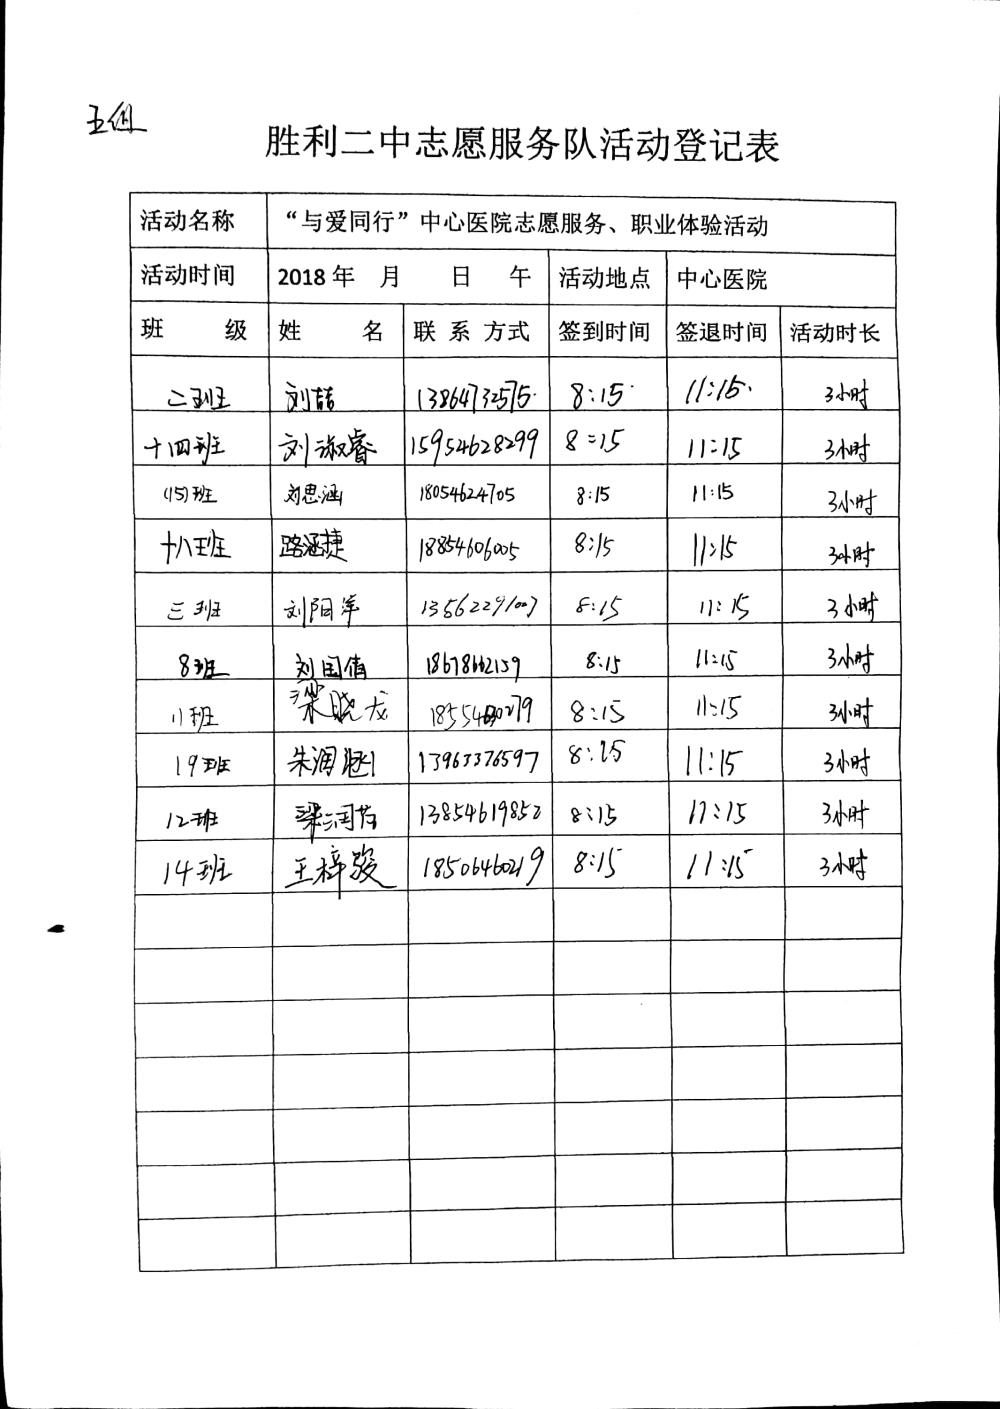 胜利二中志愿服务队活动登记表
活动名称 “与爱同行”中心医院志愿服务、职业体验活动
活动时间 2018年 月 日 午 活动地点 中心医院
班 级 姓 名 联系方式 签到时间 签退时间 活动时长
二班 刘喆 13864732575 8:15 11:15 3小时
十四班 刘淑睿 15954628299 8:15 11:15 3小时
(15)班 刘思涵 18054624705 8:15 11:15 3小时
十八班 路涵捷 18854606005 8:15 11:15 3小时
三班 刘阳萍 13562291007 8:15 11:15 3小时
8班 刘国倩 18678662159 8:15 11:15 3小时
11班 梁晓龙 8:15 11:15 3小时
19班 朱润涵 13963376597 8:15 11:15 3小时
12班 梁润芳 13854619852 8:15 11:15 3小时
14班 王梓骏 18506460219 8:15 11:15 3小时